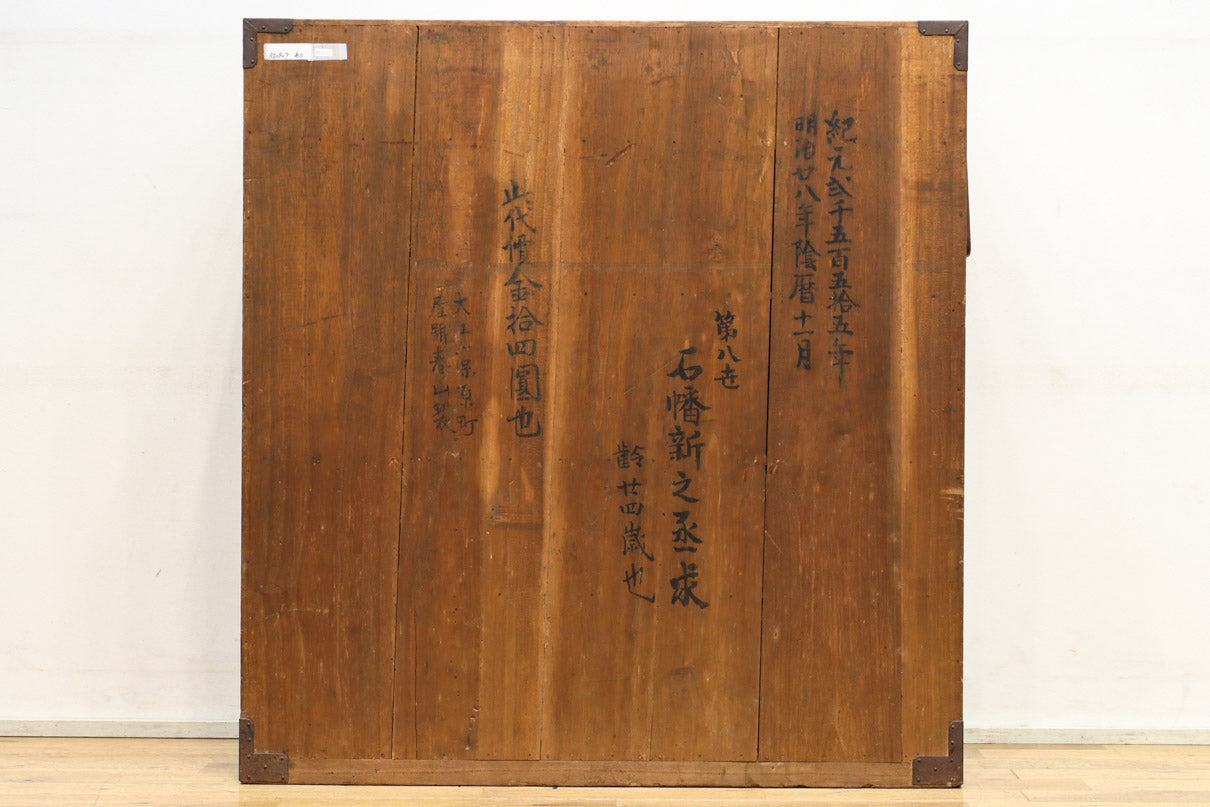 紀元弐千五百五拾五年
明治廿八年陰暦十一月
第八世
石幡新之丞求
齢廿四歳也
此代價金拾四圓也
保原町